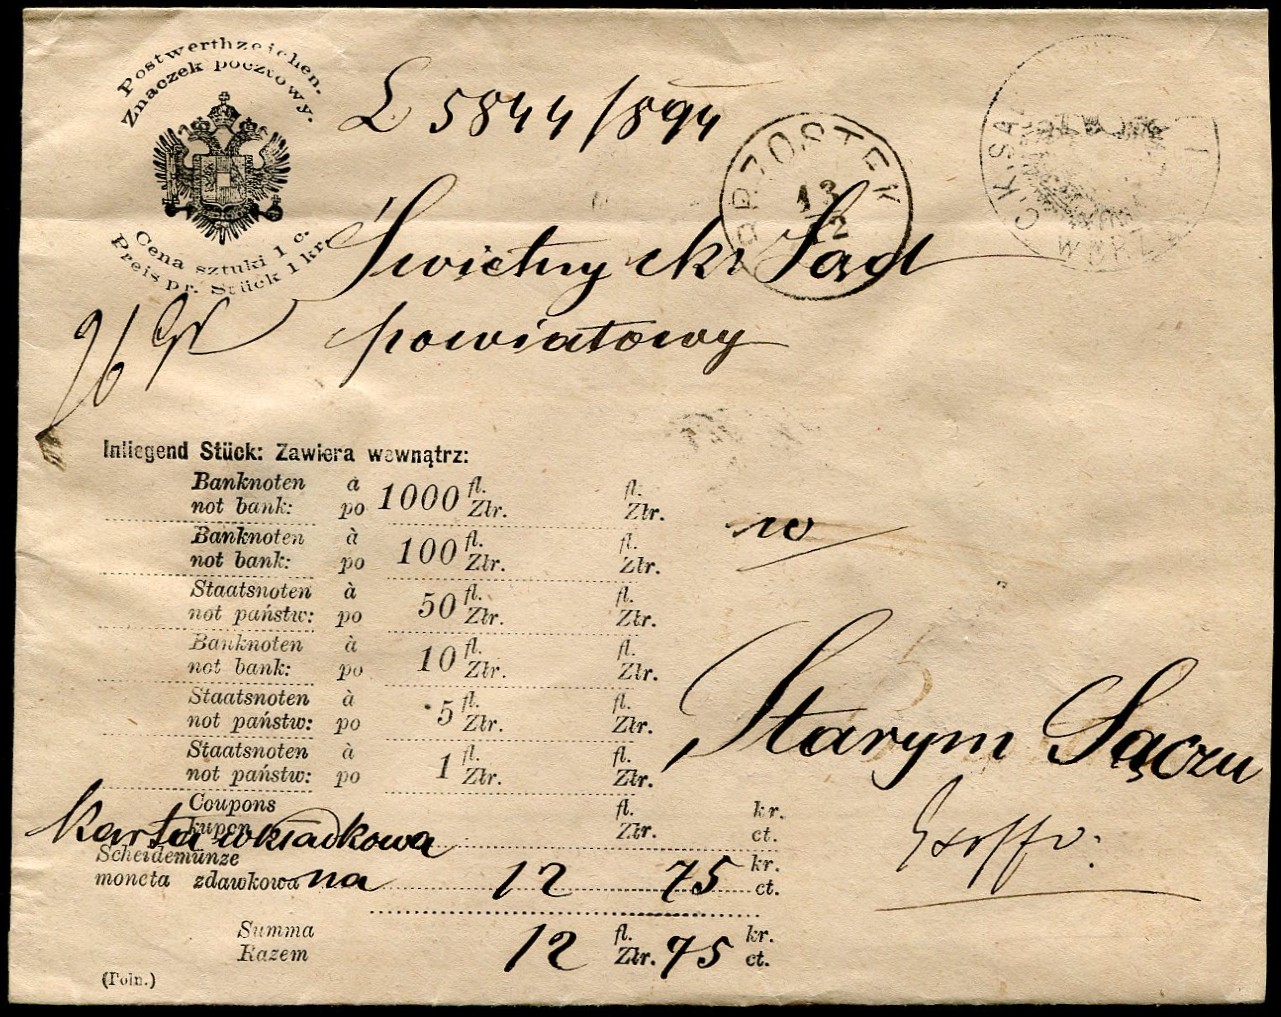 Postwerthzeichen.
Znaczek pocztowy.
Cena sztuki 1 c.
Preis pr. Stück 1 kr.
L 5844/894
BRZOSTEK
13
12
C.K.SĄ
Świetny ck Sąd
powiatowy
Inliegend Stück: Zawiera wewnątrz:
Banknoten à 1000 fl. fl.
not bank: po Złr. Złr.
Banknoten à 100 fl. fl.
not bank: po Złr. Złr.
Staatsnoten à 50 fl. fl.
not państw: po Złr. Złr.
Banknoten à 10 fl. fl.
not bank: po Złr. Złr.
Staatsnoten à 5 fl. fl.
not państw: po Złr. Złr.
Staatsnoten à 1 fl. fl.
not państw: po Złr. Złr.
w
Starym Sączu
Coupons fl. kr.
kupon Złr. ct.
Karta wkładkowa
Scheidemünze kr.
moneta zdawkowa na 12 75 ct.
Summa fl. kr.
Razem 12 Złr. 75 ct.
(Poln.)